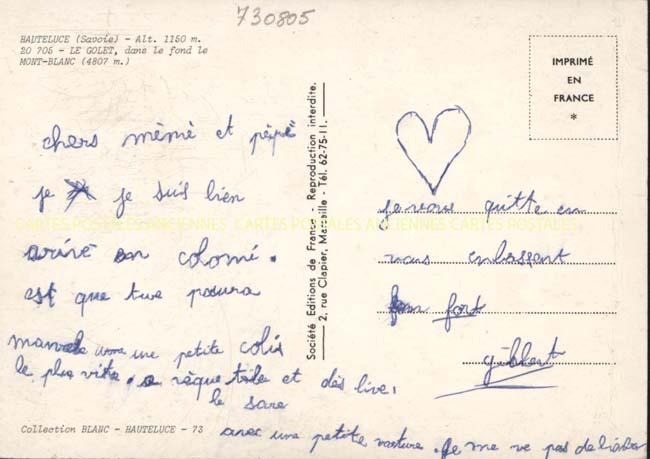 730805
HAUTELUCE (Savoie) - Alt. 1150 m.
20 705 - LE GOLET, dans le fond le
MONT-BLANC (4807 m.)
IMPRIMÉ
EN
FRANCE
*
chers mémé et pépé
je je suis bien
arrivé en colomé.
est que tue poura
une petite colis
le plus vite. et dès live,
le sare
avec une petite voiture. Je me ve pas
CARTES POSTALES ANCIENNES CARTES POSTALES ANCIENNES CARTES POSTALES
Société Editions de France - Reproduction interdite.
2, rue Clapier, Marseille - Tél. 62-75-11.
je vous quitte en
vous enbrssant
fort
gilbbert
Collection BLANC - HAUTELUCE - 73